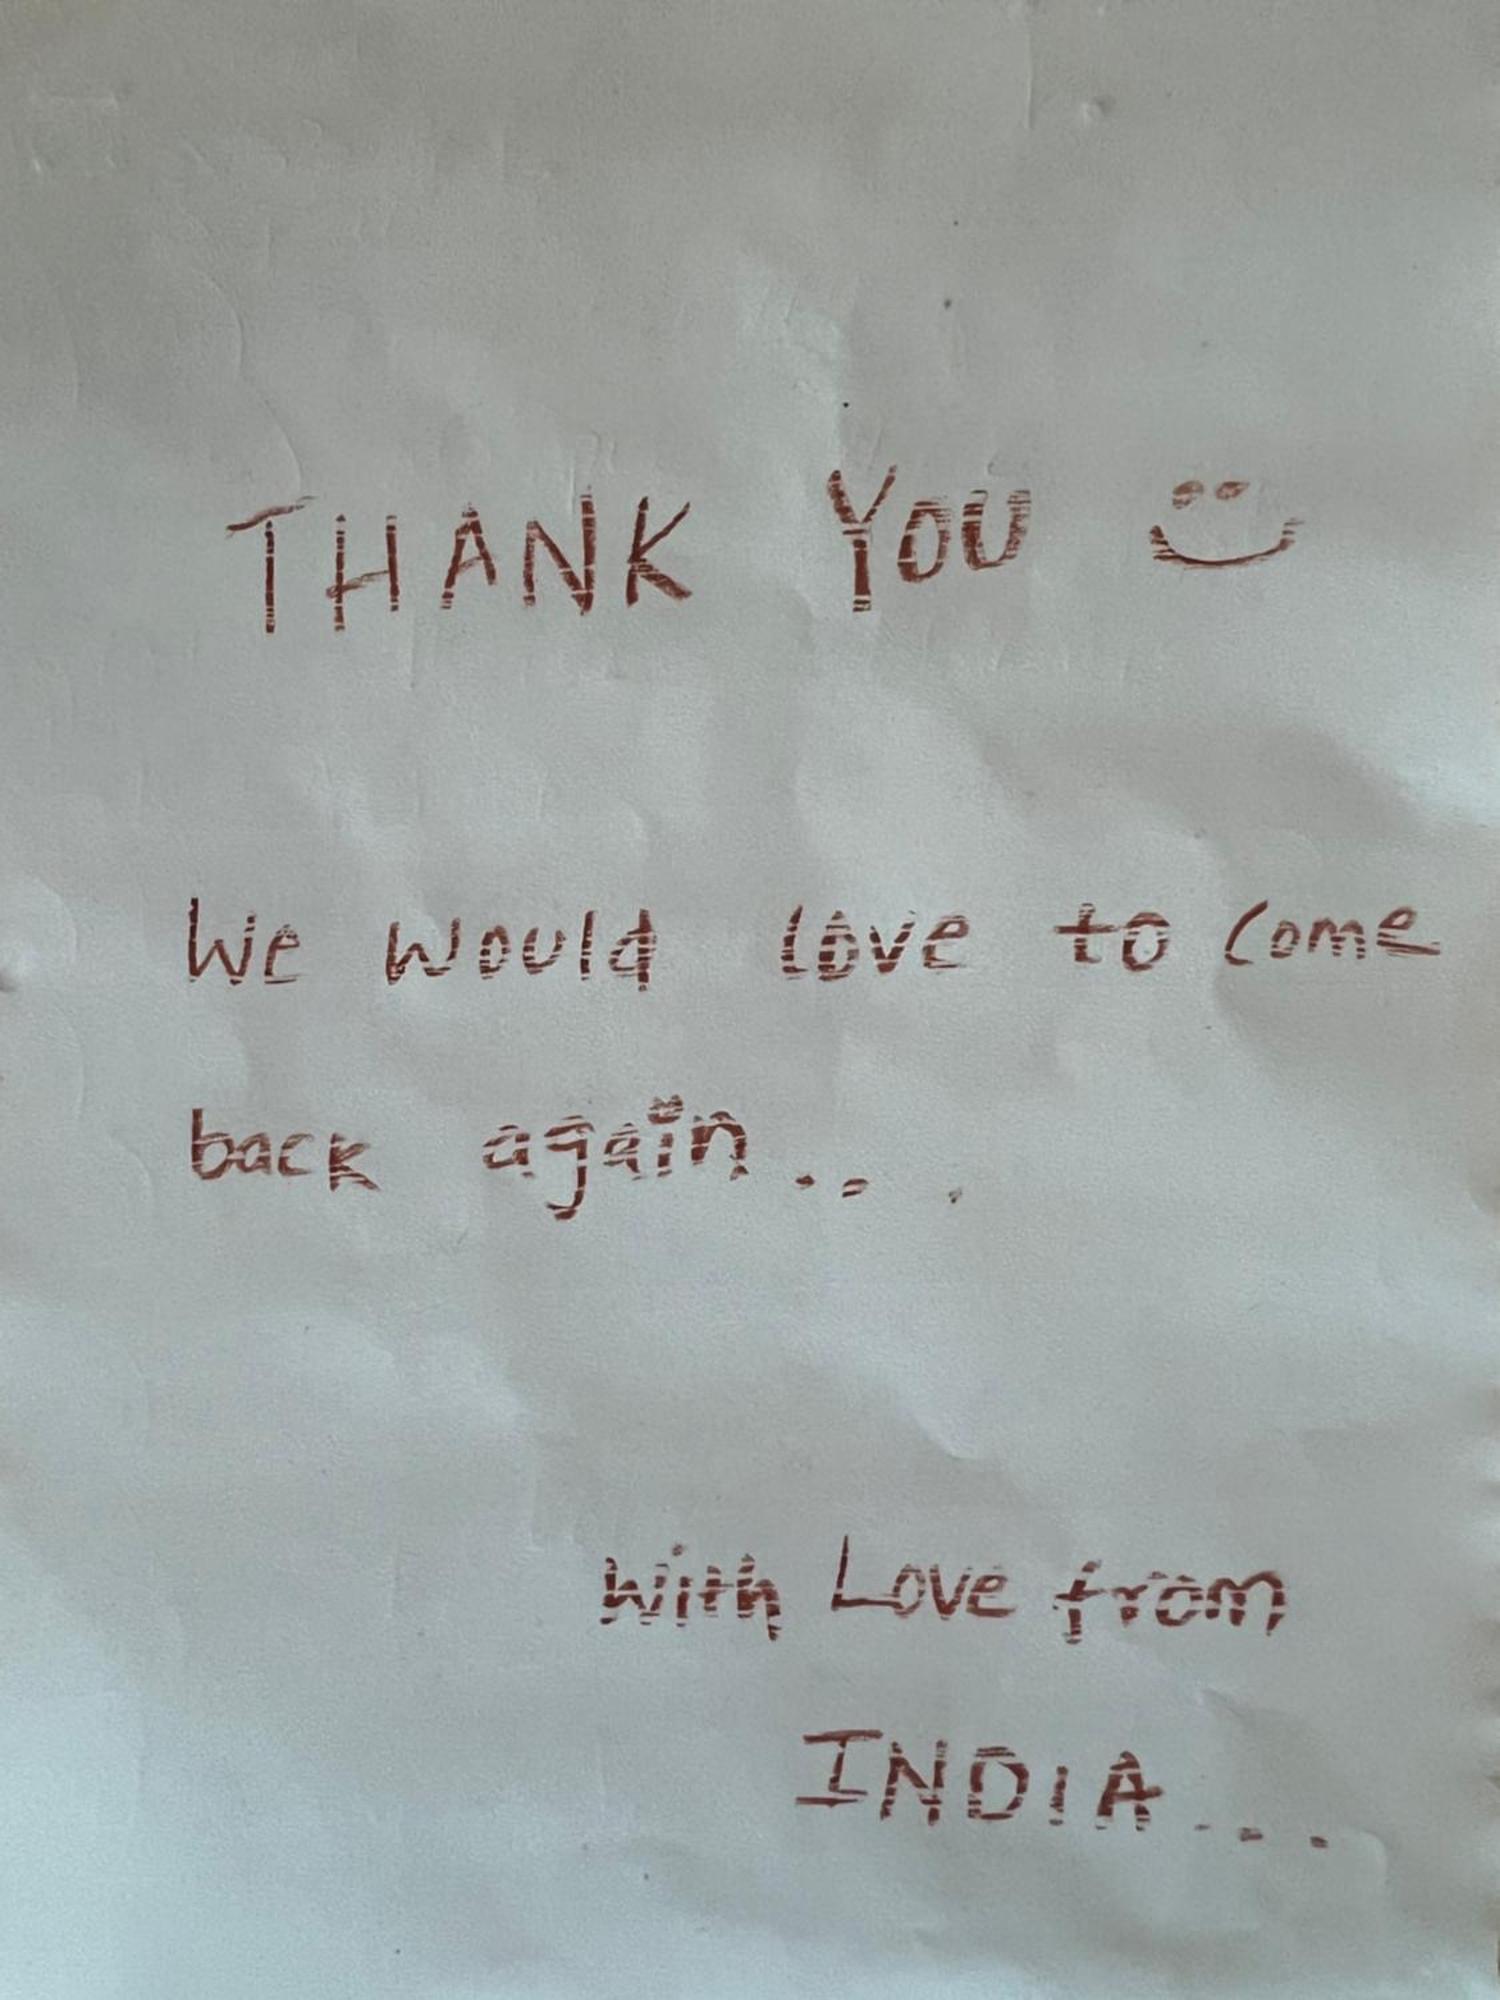 THANK YOU
We would love to come
back again...
With Love from
INDIA...